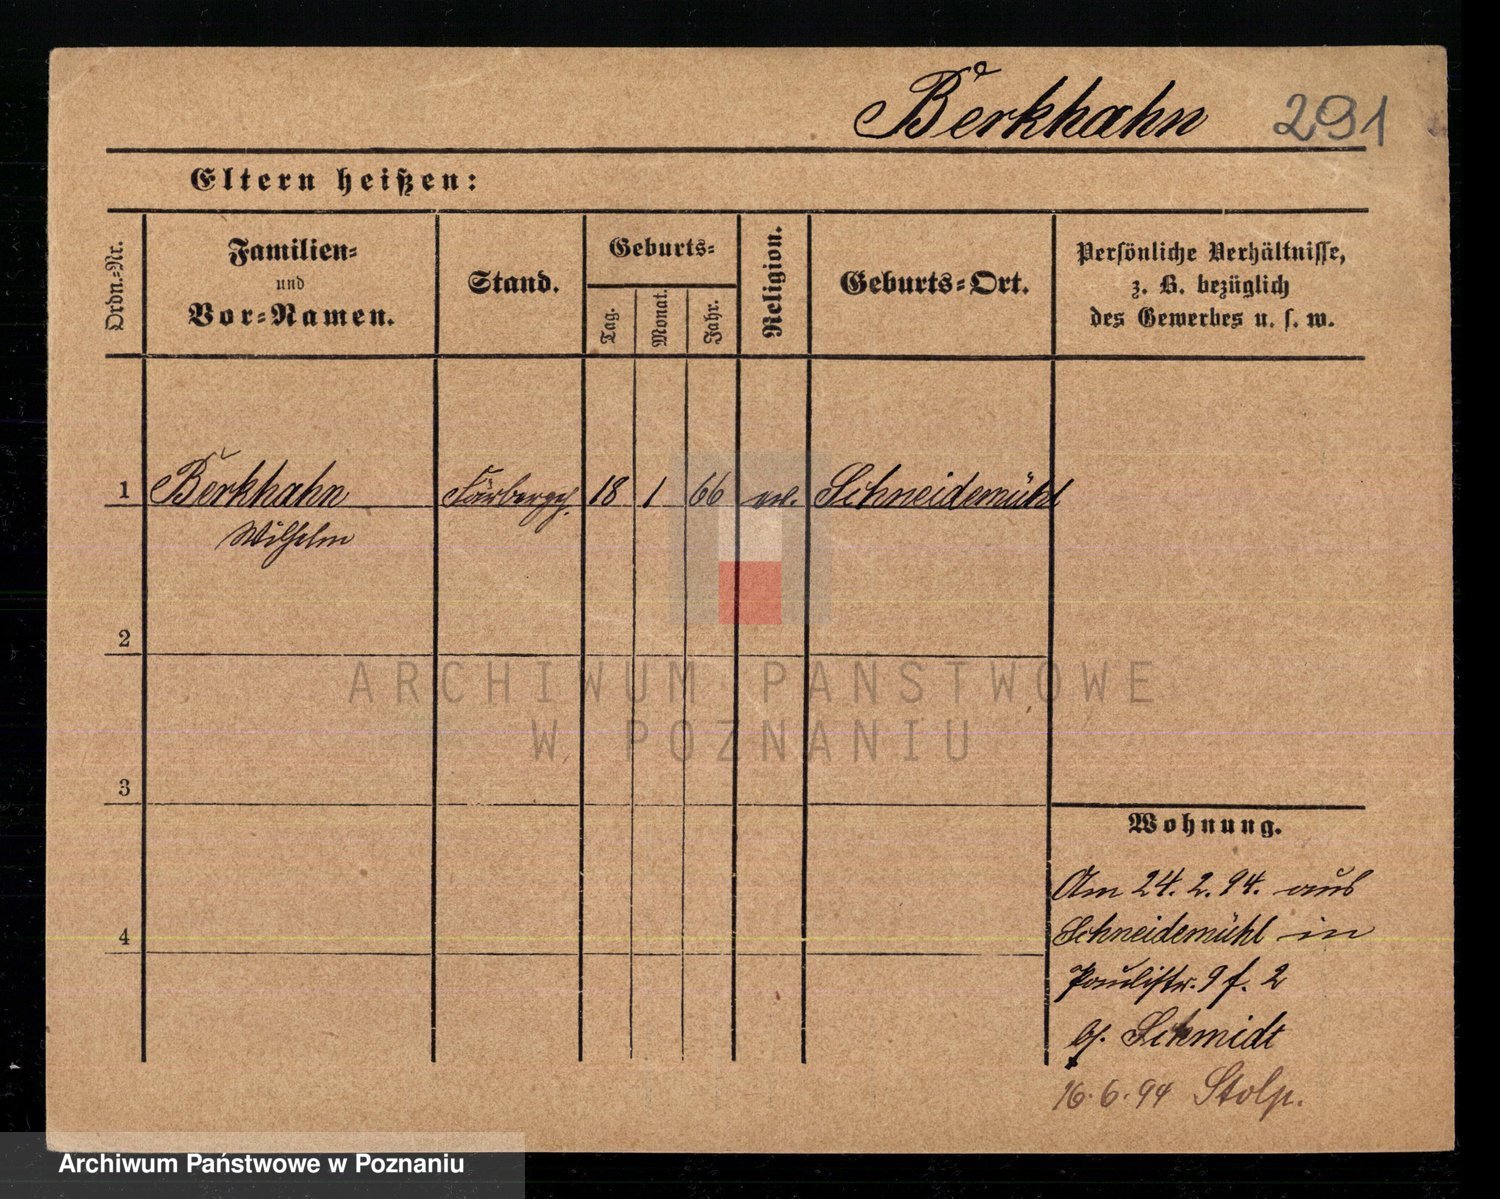 Berkhahn 291
Eltern heißen:
Ordn.-Nr.
Familien-
und
Vor-Namen.
Stand.
Geburts-
Tag.
Monat.
Jahr.
Religion.
Geburts-Ort.
Persönliche Verhältnisse,
z. B. bezüglich
des Gewerbes u. s. w.
1 Berkhahn Färbergeh. 18 1 66 ev. Schneidemühl
Wilhelm
2
3
4
Wohnung.
Am 24. 2. 94. aus
Schneidemühl in
Paulistr. 9 f. 2
b/. Schmidt
16. 6. 94 Stolp.
ARCHIWUM PAŃSTWOWE
W POZNANIU
Archiwum Państwowe w Poznaniu